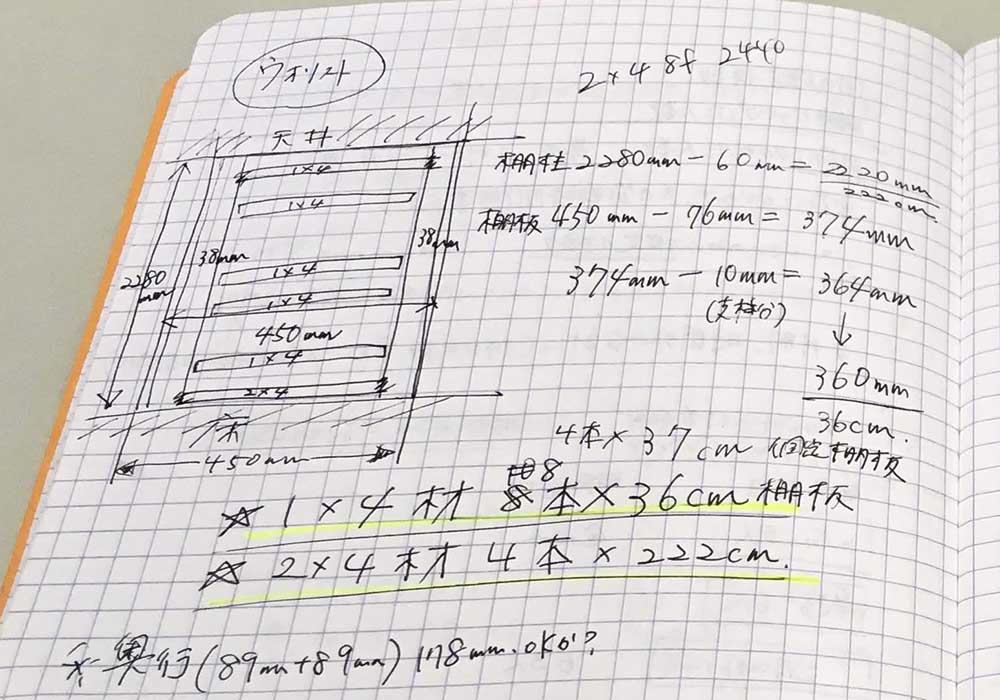 ウォリスト
2×4 8f 2440
天井
1×4
1×4
38mm
38mm
2280
mm
1×4
1×4
450mm
1×4
2×4
床
450mm
棚柱 2280mm - 60mm = 2220mm
222cm.
棚板 450mm - 76mm = 374mm
374mm - 10mm = 364mm
(支柱分)
↓
360mm
36cm.
4本×37cm (固定棚板
8
☆ 1×4材 8本×36cm 棚板
☆ 2×4材 4本×222cm.
奥行(89mm+89mm) 178mm.OKか?